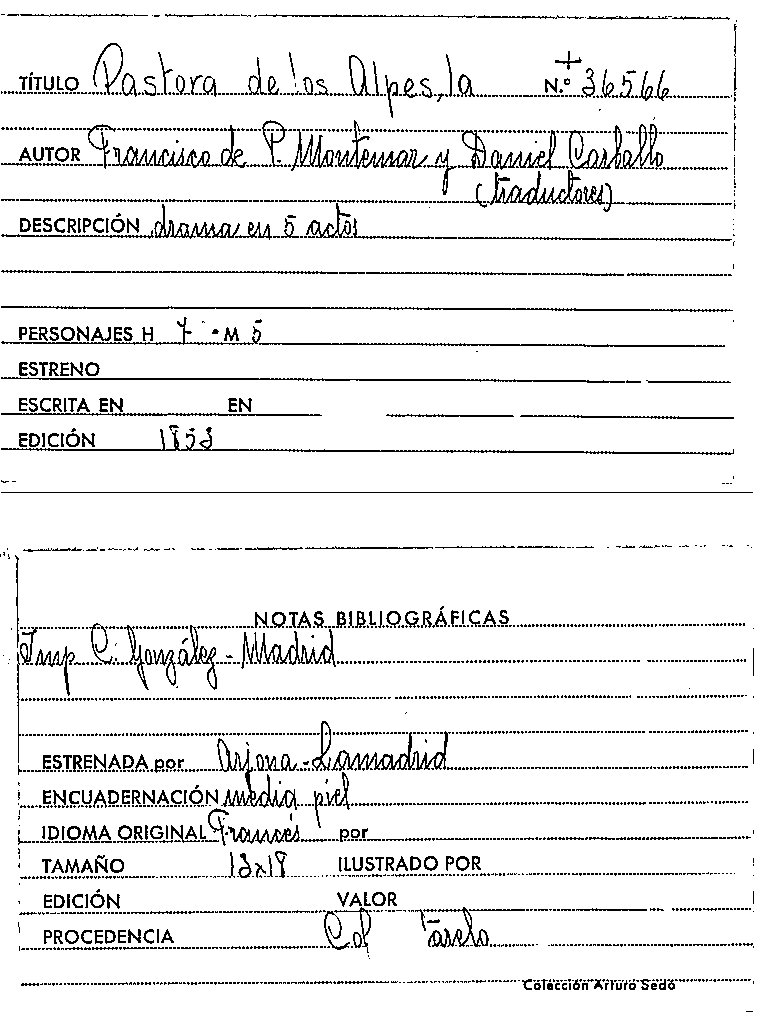 TÍTULO Pastora de los Alpes, la N.º 36566
AUTOR Francisco de P. Montemar y Daniel Carballo
(traductores)
DESCRIPCIÓN drama en 5 actos
PERSONAJES H 7 - M 5
ESTRENO
ESCRITA EN EN
EDICIÓN
NOTAS BIBLIOGRÁFICAS
Imp C. González - Madrid
ESTRENADA por Arjona - Lamadrid
ENCUADERNACIÓN media piel
IDIOMA ORIGINAL Francés por
TAMAÑO ILUSTRADO POR
EDICIÓN VALOR
PROCEDENCIA Col
Colección Arturo Sedó